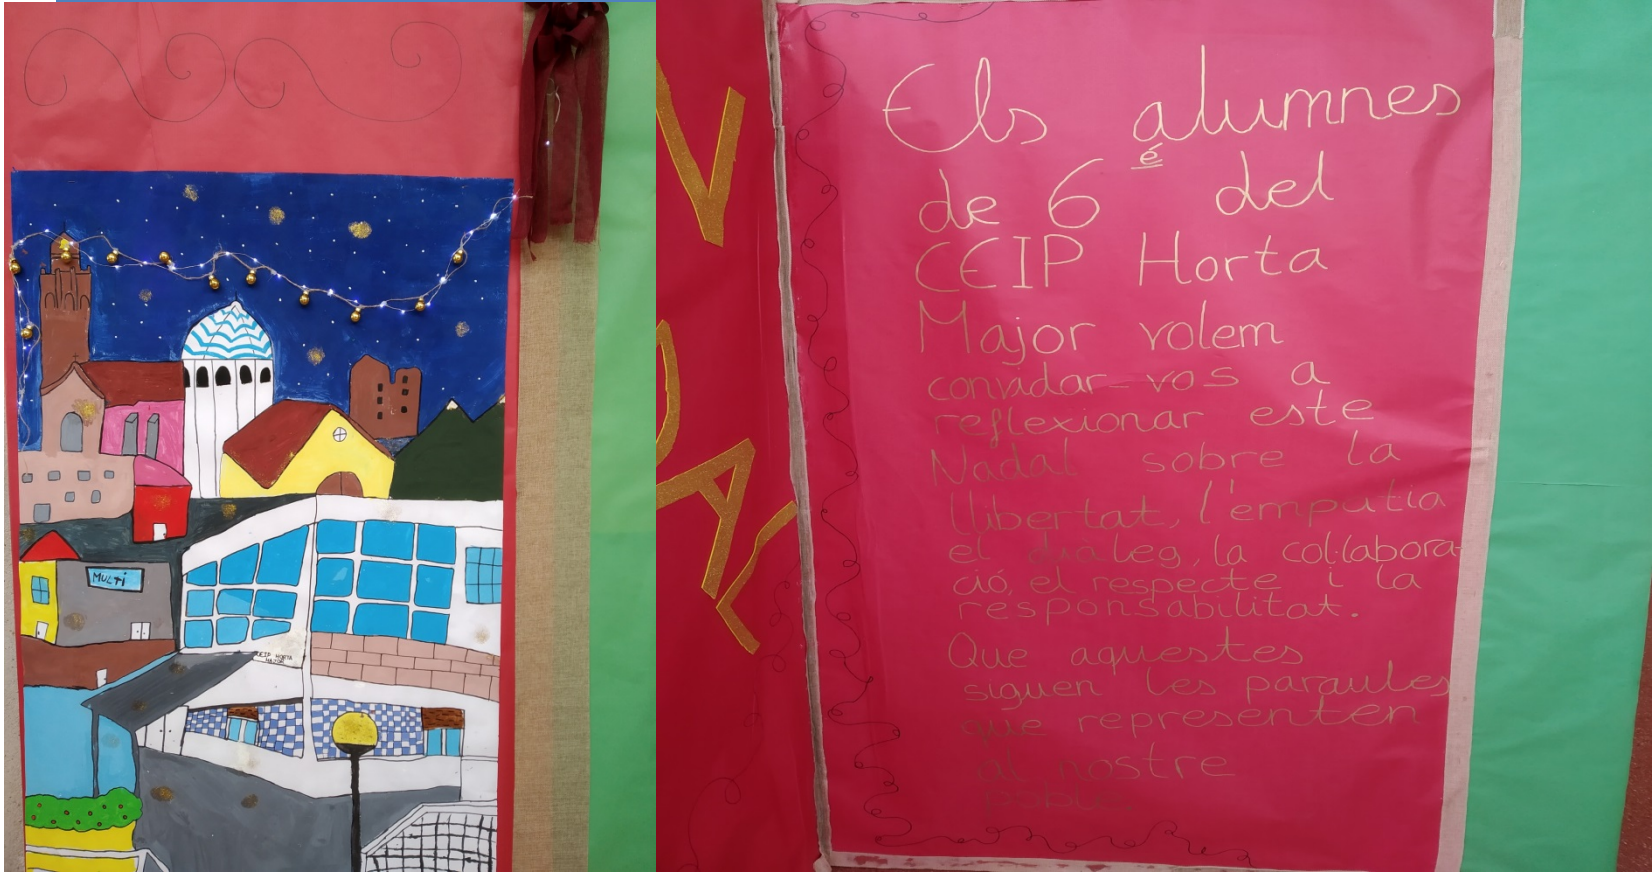 MULTI
CEIP HORTA
MAJOR
V
DAL
Els alumnes
de 6é del
CEIP Horta
Major volem
convidar-vos a
reflexionar este
Nadal sobre la
llibertat, l'empatia
el diàleg, la col·labora-
ció, el respecte i la
responsabilitat.
Que aquestes
siguen les paraules
que representen
al nostre
poble